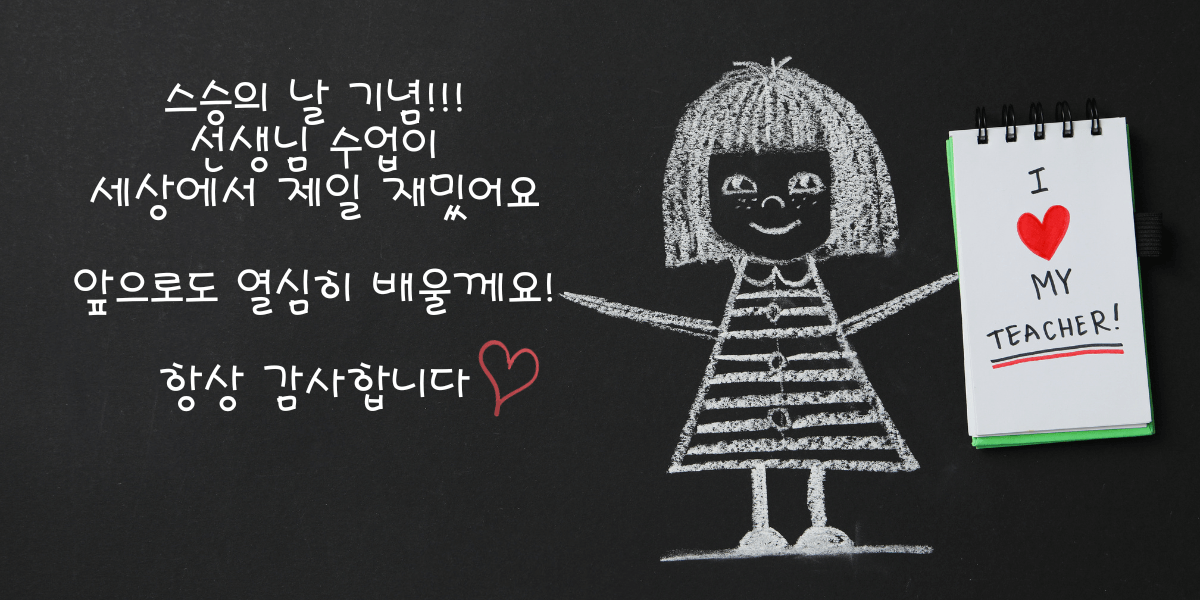 스승의 날 기념!!!
선생님 수업이
세상에서 제일 재밌어요
앞으로도 열심히 배울께요!
항상 감사합니다
I
MY
TEACHER!